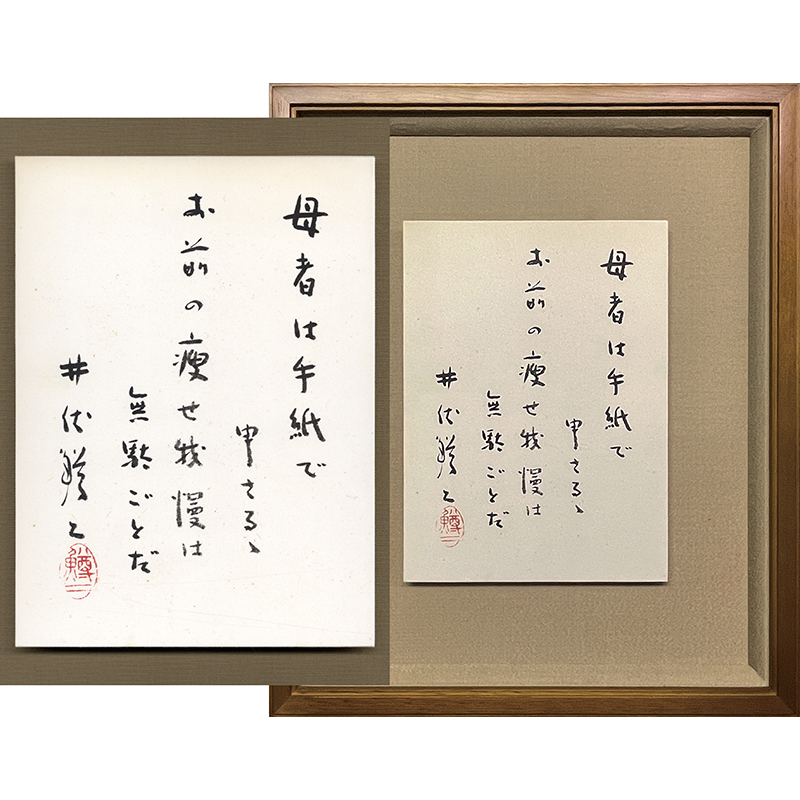 母者は手紙で
申さるゝ
お前の痩せ我慢は
無駄ごとだ
井伏鱒二
鱒二
母者は手紙で
申さるゝ
お前の痩せ我慢は
無駄ごとだ
井伏鱒二
鱒二